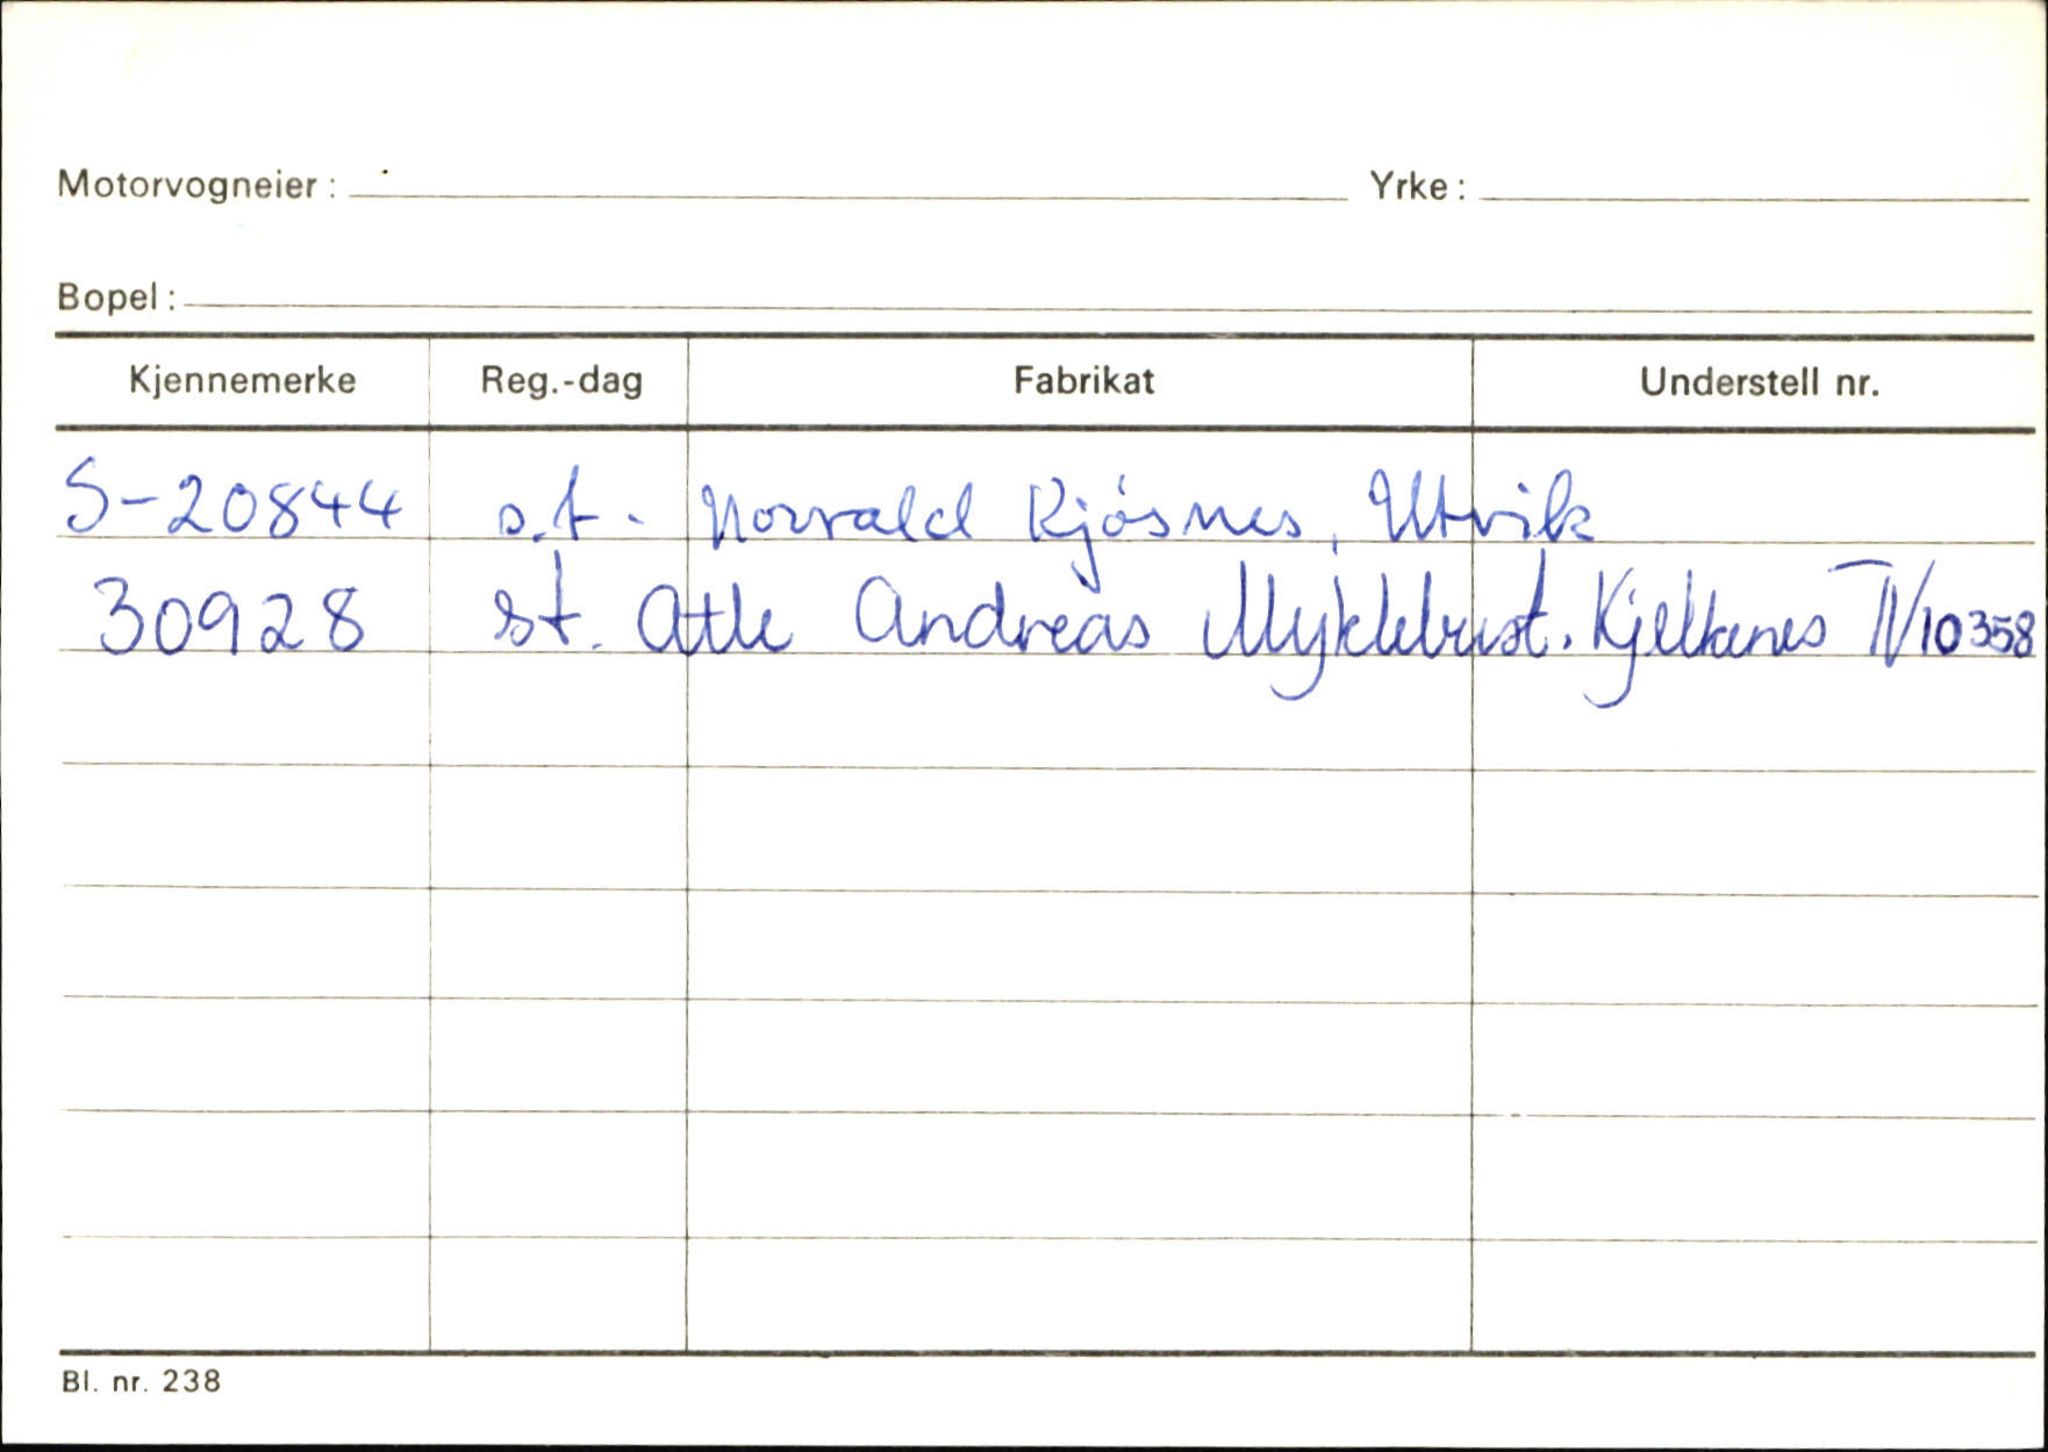 Motorvogneier: Yrke:
Bopel:
Kjennemerke Reg.-dag Fabrikat Understell nr.
S-20844 s.t. Norvald Kjósnes, Utvik
30928 st. Atle Andreas Myklebust. Kjelkenes TV10358
Bl. nr. 238